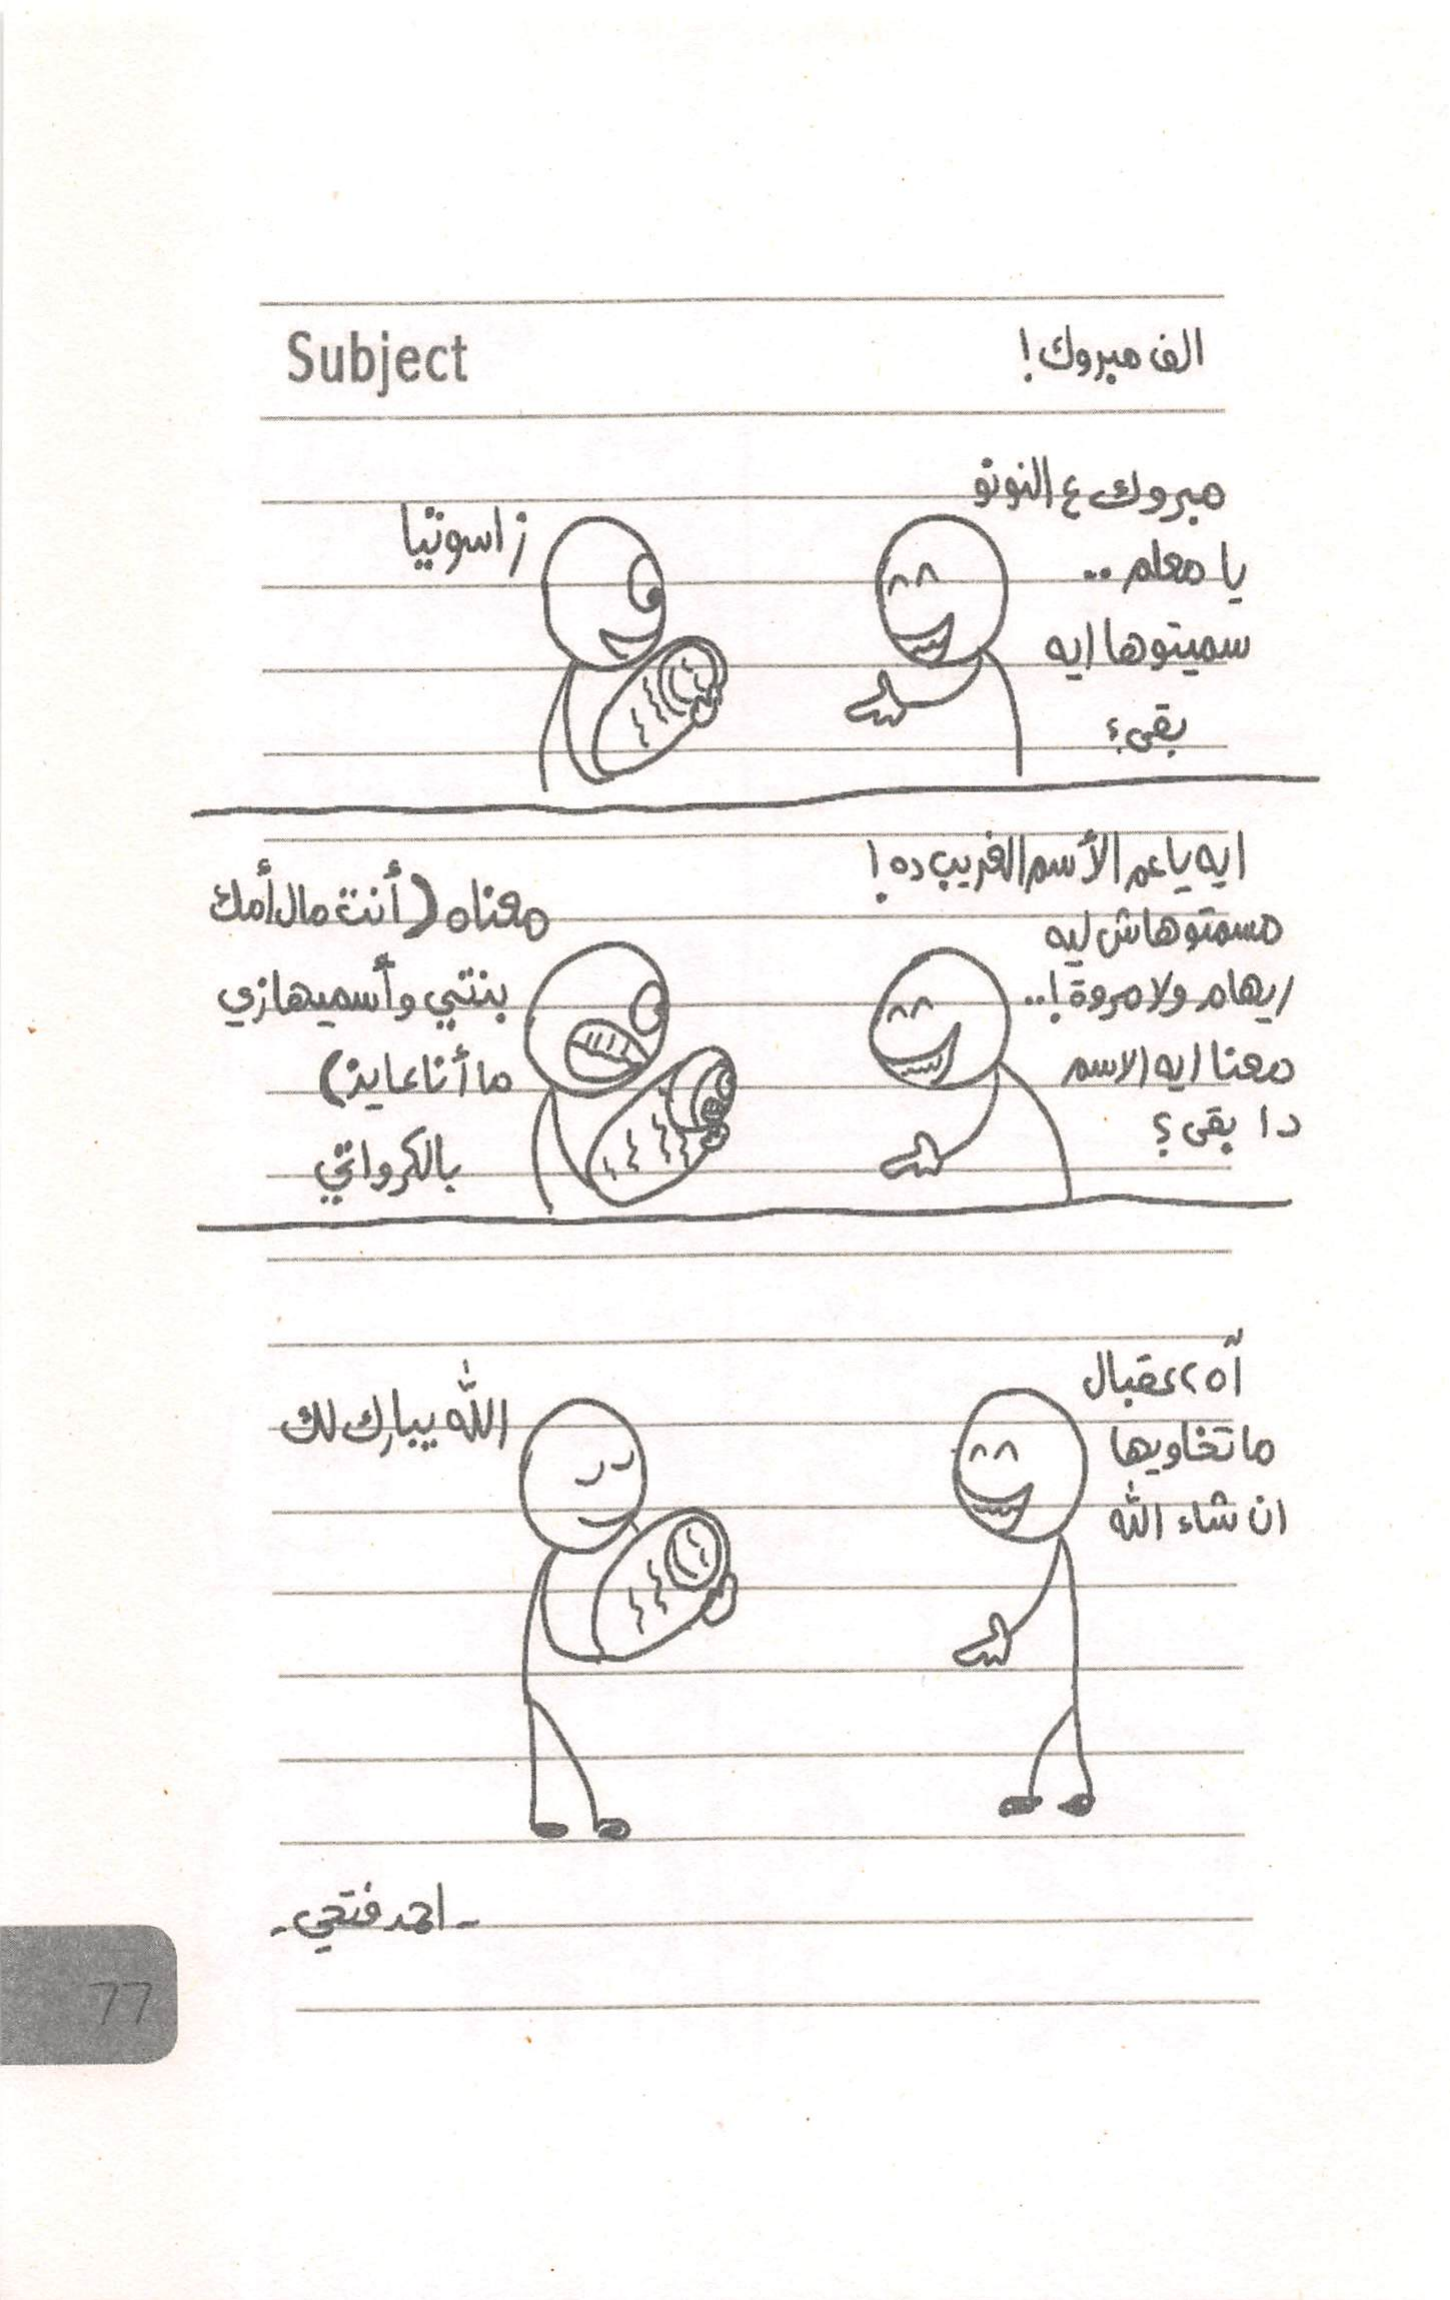 Subject
الف مبروك!
مبروك ع النونو
يا معلم..
سميتوها ايه
بقى؟
زاسوتيا
ايه ياعم الأسم الغريب ده!
مسمتوهاش ليه
ريهام ولا مروة!..
معنا ايه الاسم
دا بقى؟
معناه (أنت مال أمك
بنتي وأسميها زي
ما أنا عايز)
بالكرواتي
آه عقبال
ما تخاويها
ان شاء الله
الله يبارك لك
- احمد فتحي -
77